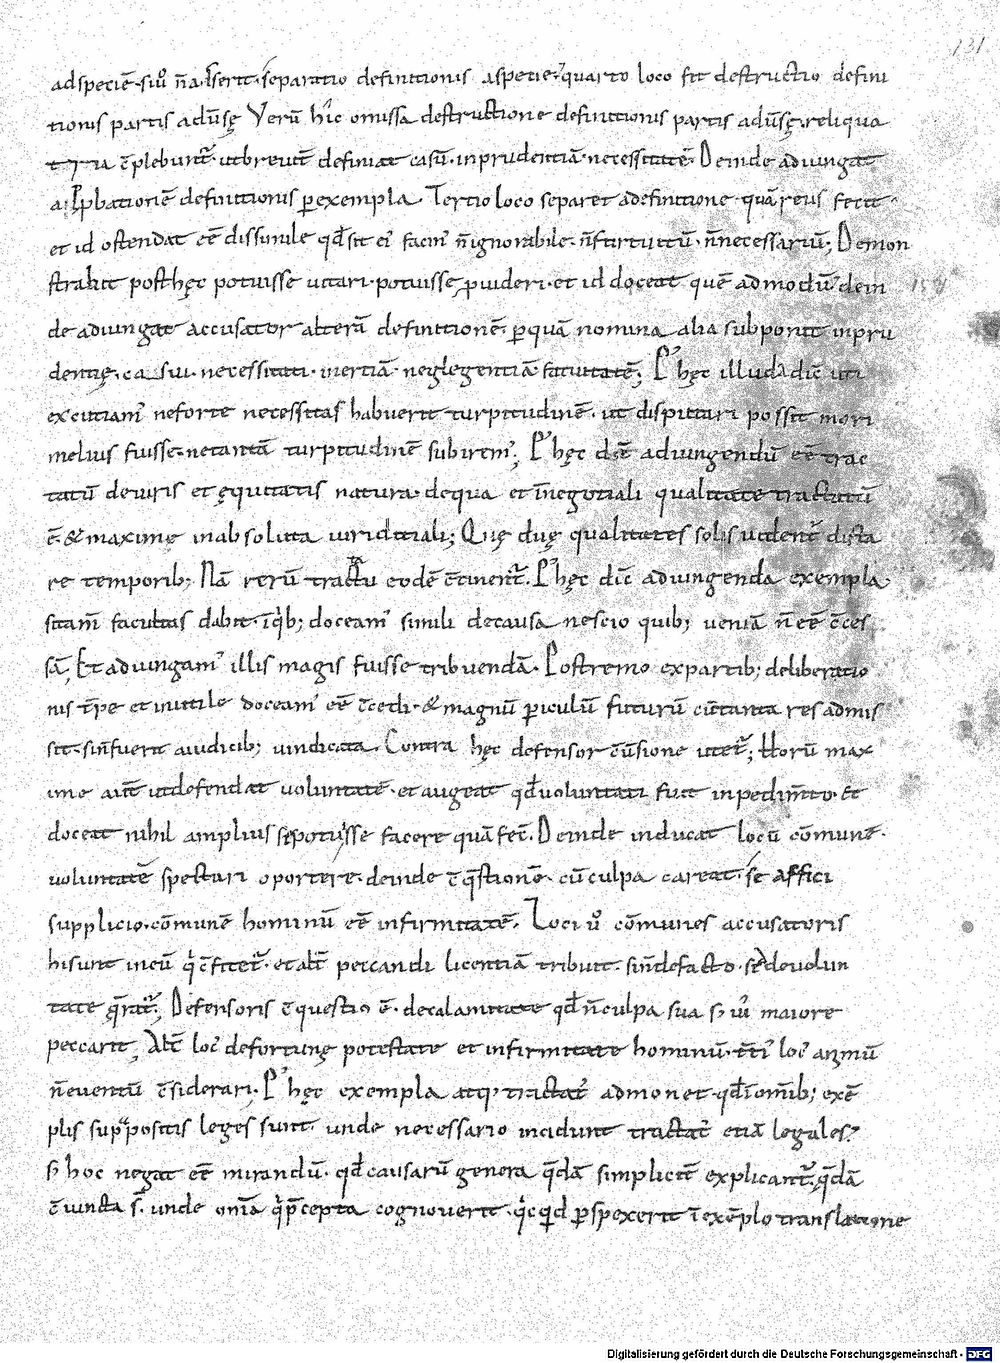 131
ad speciē · siū n̄a · Iserit · separatio definitionis a specie · quarto loco fit destructio defini
tionis partis adūsę Verū hic omissa destructione definitionis partis adūsę · reliqua
tria c̄plebunt᷑ · ut breuit̄ definiat casū · inprudentiā · necessitatē · Deinde adiungat
a · p̱bationē definitionis ꝑ exempla Tertio loco separet a definitione quā reus fecit ·
et id ostendat eē dissimile qđ sit ei᾽ facin᾽ n̄ ignorabile · n̄ fortuitū · n̄ necessariū; Demon
strabit post hęc potuisse uitari · potuisse ꝓuideri · et id doceat quē ad modū dein
de adiungat accusator alterā definitionē · ꝑ quā nomina alia subponit inpru
dentię, casui · necessitati · inertiā · neglegentiā fatuitatē; P᾽ hęc illud adic̄ uti
excutiam᾽ ne forte necessitas habuerit turpitudinē · ut disputari possit mori
melius fuisse · ne tantā turpitudinē subirem᾽; P᾽ hęc d̄eē adiungendū eē trac
tatū de iuris et ęquitatis natura · de qua et in negotiali qualitate tractatū
ē · & maxime in absoluta uiriditiali; Quę duę qualitates solis uident᷑ dista
re temporib; Nā rerū tractatu eodē c̄tinent᷑. P᾽ hęc dic̄ adiungenda exempla
si tam̄ facultas dabit · ī qib; doceam᾽ simili de causa nescio quib; ueniā n̄ eē c̄ces
sā, Et adiungam᾽ illis magis fuisse tribuendā · Postremo ex partib; deliberatio
nis t̄pe et inutile doceam᾽ eē c̄cedi · & magnū periculū futurū cū tanta res admis
sit · si n̄ fuerit a iudicib; uindicata . Contra hęc defensor c̄uersione utet᷑; Horū max
ime aut̄ ut defendat uoluntatē · et augeat qđ uoluntati fuit inpedim̄to · Et
doceat nihil amplius se potuisse facere quā fec̄ · Deinde inducat locū cōmunē ·
uoluntatē spectari oportere · deinde c̄qstionē · cū culpa careat · se affici
supplicio · cōmunē hominū eē infirmitatē · Loci ū cōmunes accusatoris
hi sunt in eū qi c̄fitet᷑ · et alt̄ peccandi licentiā tribuit · si n̄ de facto · sed de uolun
tate qrat᷑; Defensoris c̄questio ē · de calamitate qđ n̄ culpa sua s; ui maiore
peccarit, Alt̄ loc᾽ de fortunę potestate et infirmitate hominū · t̄ti᾽ loc᾽ animū
n̄ euentū c̄siderari · P᾽ hęc exempla atq᾽ tractat᾽ admonet · qđ ī om̄ib; exē
plis suppositis leges sunt unde necessario incidunt tractat᾽ etiā legales?
s; hoc negat eē mirandū · qđ causarū genera qdā simplicit̄ explicant᷑, qdā
c̄iuncta s̄ · unde om̄a q p̄cepta cognouerit · qicqid ꝑspexerit ī exēplo translatione
Digitalisierung gefördert durch die Deutsche Forschungsgemeinschaft - DFG